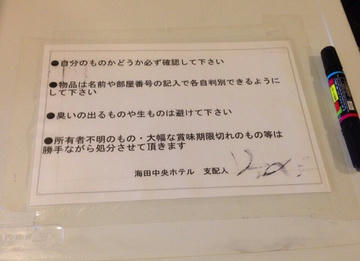 ●自分のものかどうか必ず確認して下さい
●物品は名前や部屋番号の記入で各自判別できるように
して下さい
●臭いの出るものや生ものは避けて下さい
●所有者不明のもの・大幅な賞味期限切れのもの等は
勝手ながら処分させて頂きます
海田中央ホテル　支配人